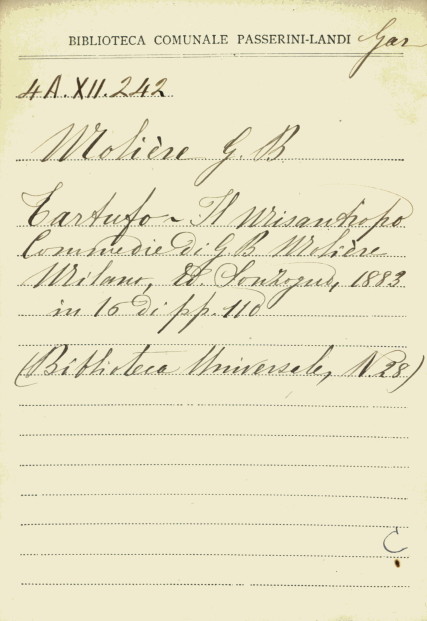 BIBLIOTECA COMUNALE PASSERINI-LANDI Gar
4A.XII.242
Molière G. B.
Tartufo - Il Misantropo
Commedie di G B Molière
Milano, Ed. Sonzogno, 1883
in 16 di pp. 110
(Biblioteca Universale, N. 28)
C